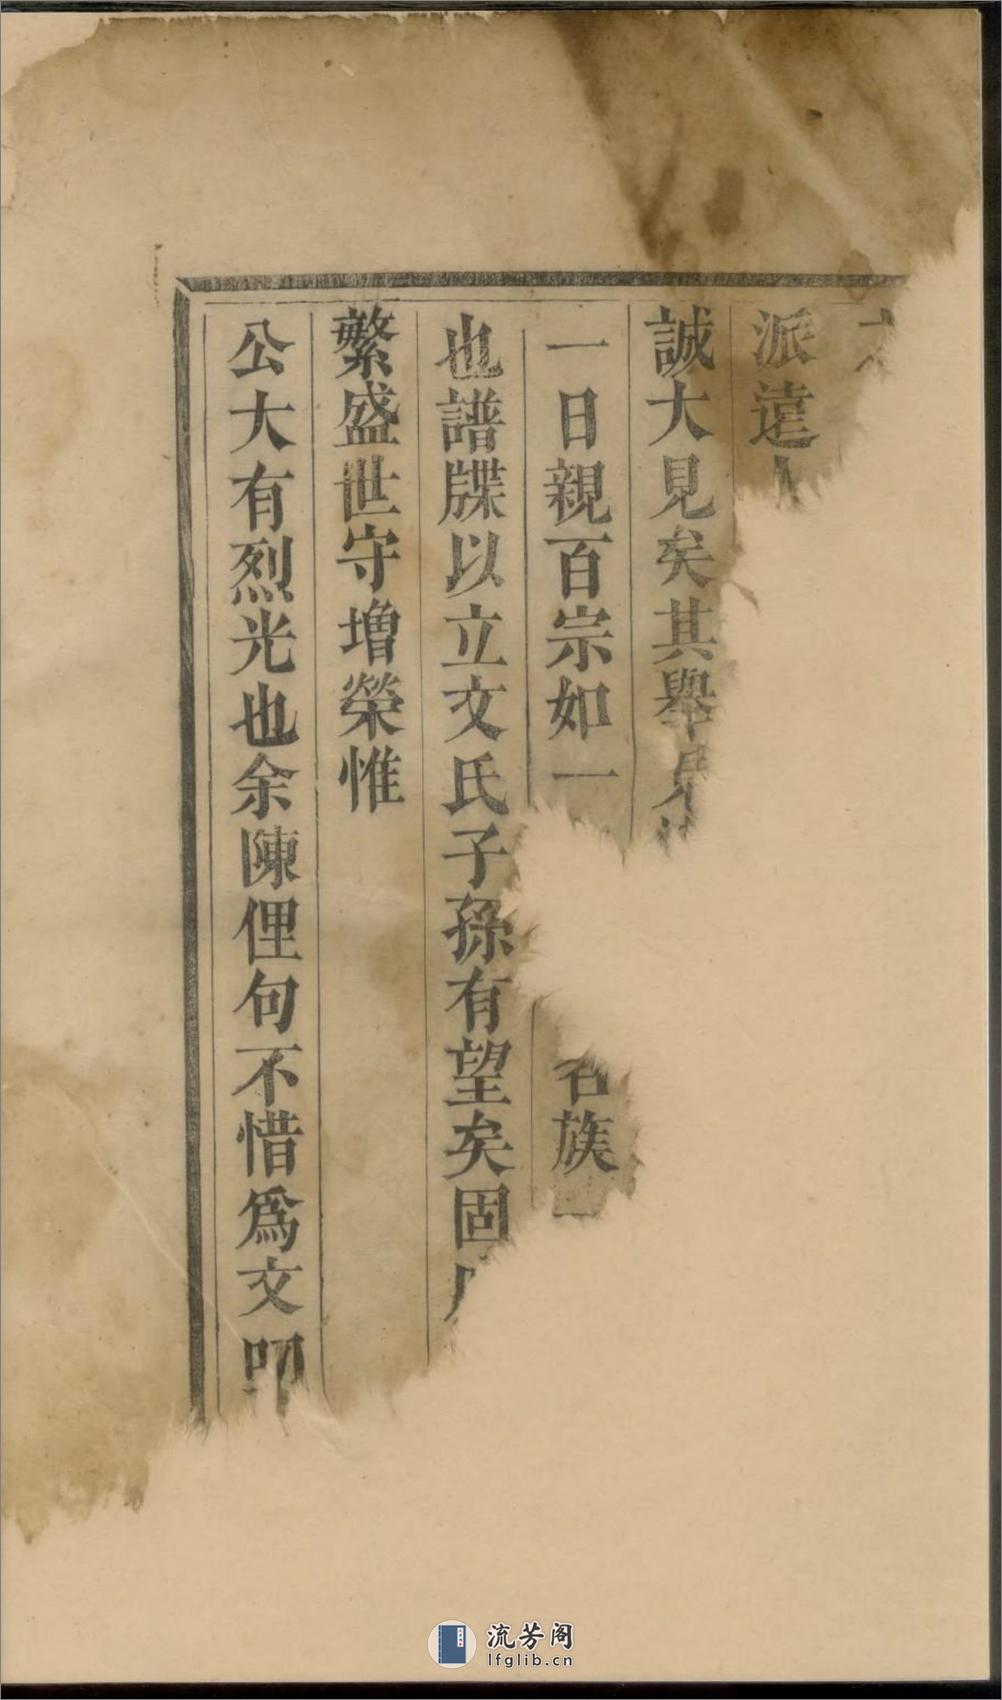 派遠
誠大見矣其舉
一日親百宗如一
名族
也譜牒以立文氏子孫有望矣固
繁盛世守增榮惟
公大有烈光也余陳俚句不惜爲文
流芳阁
lfglib.cn